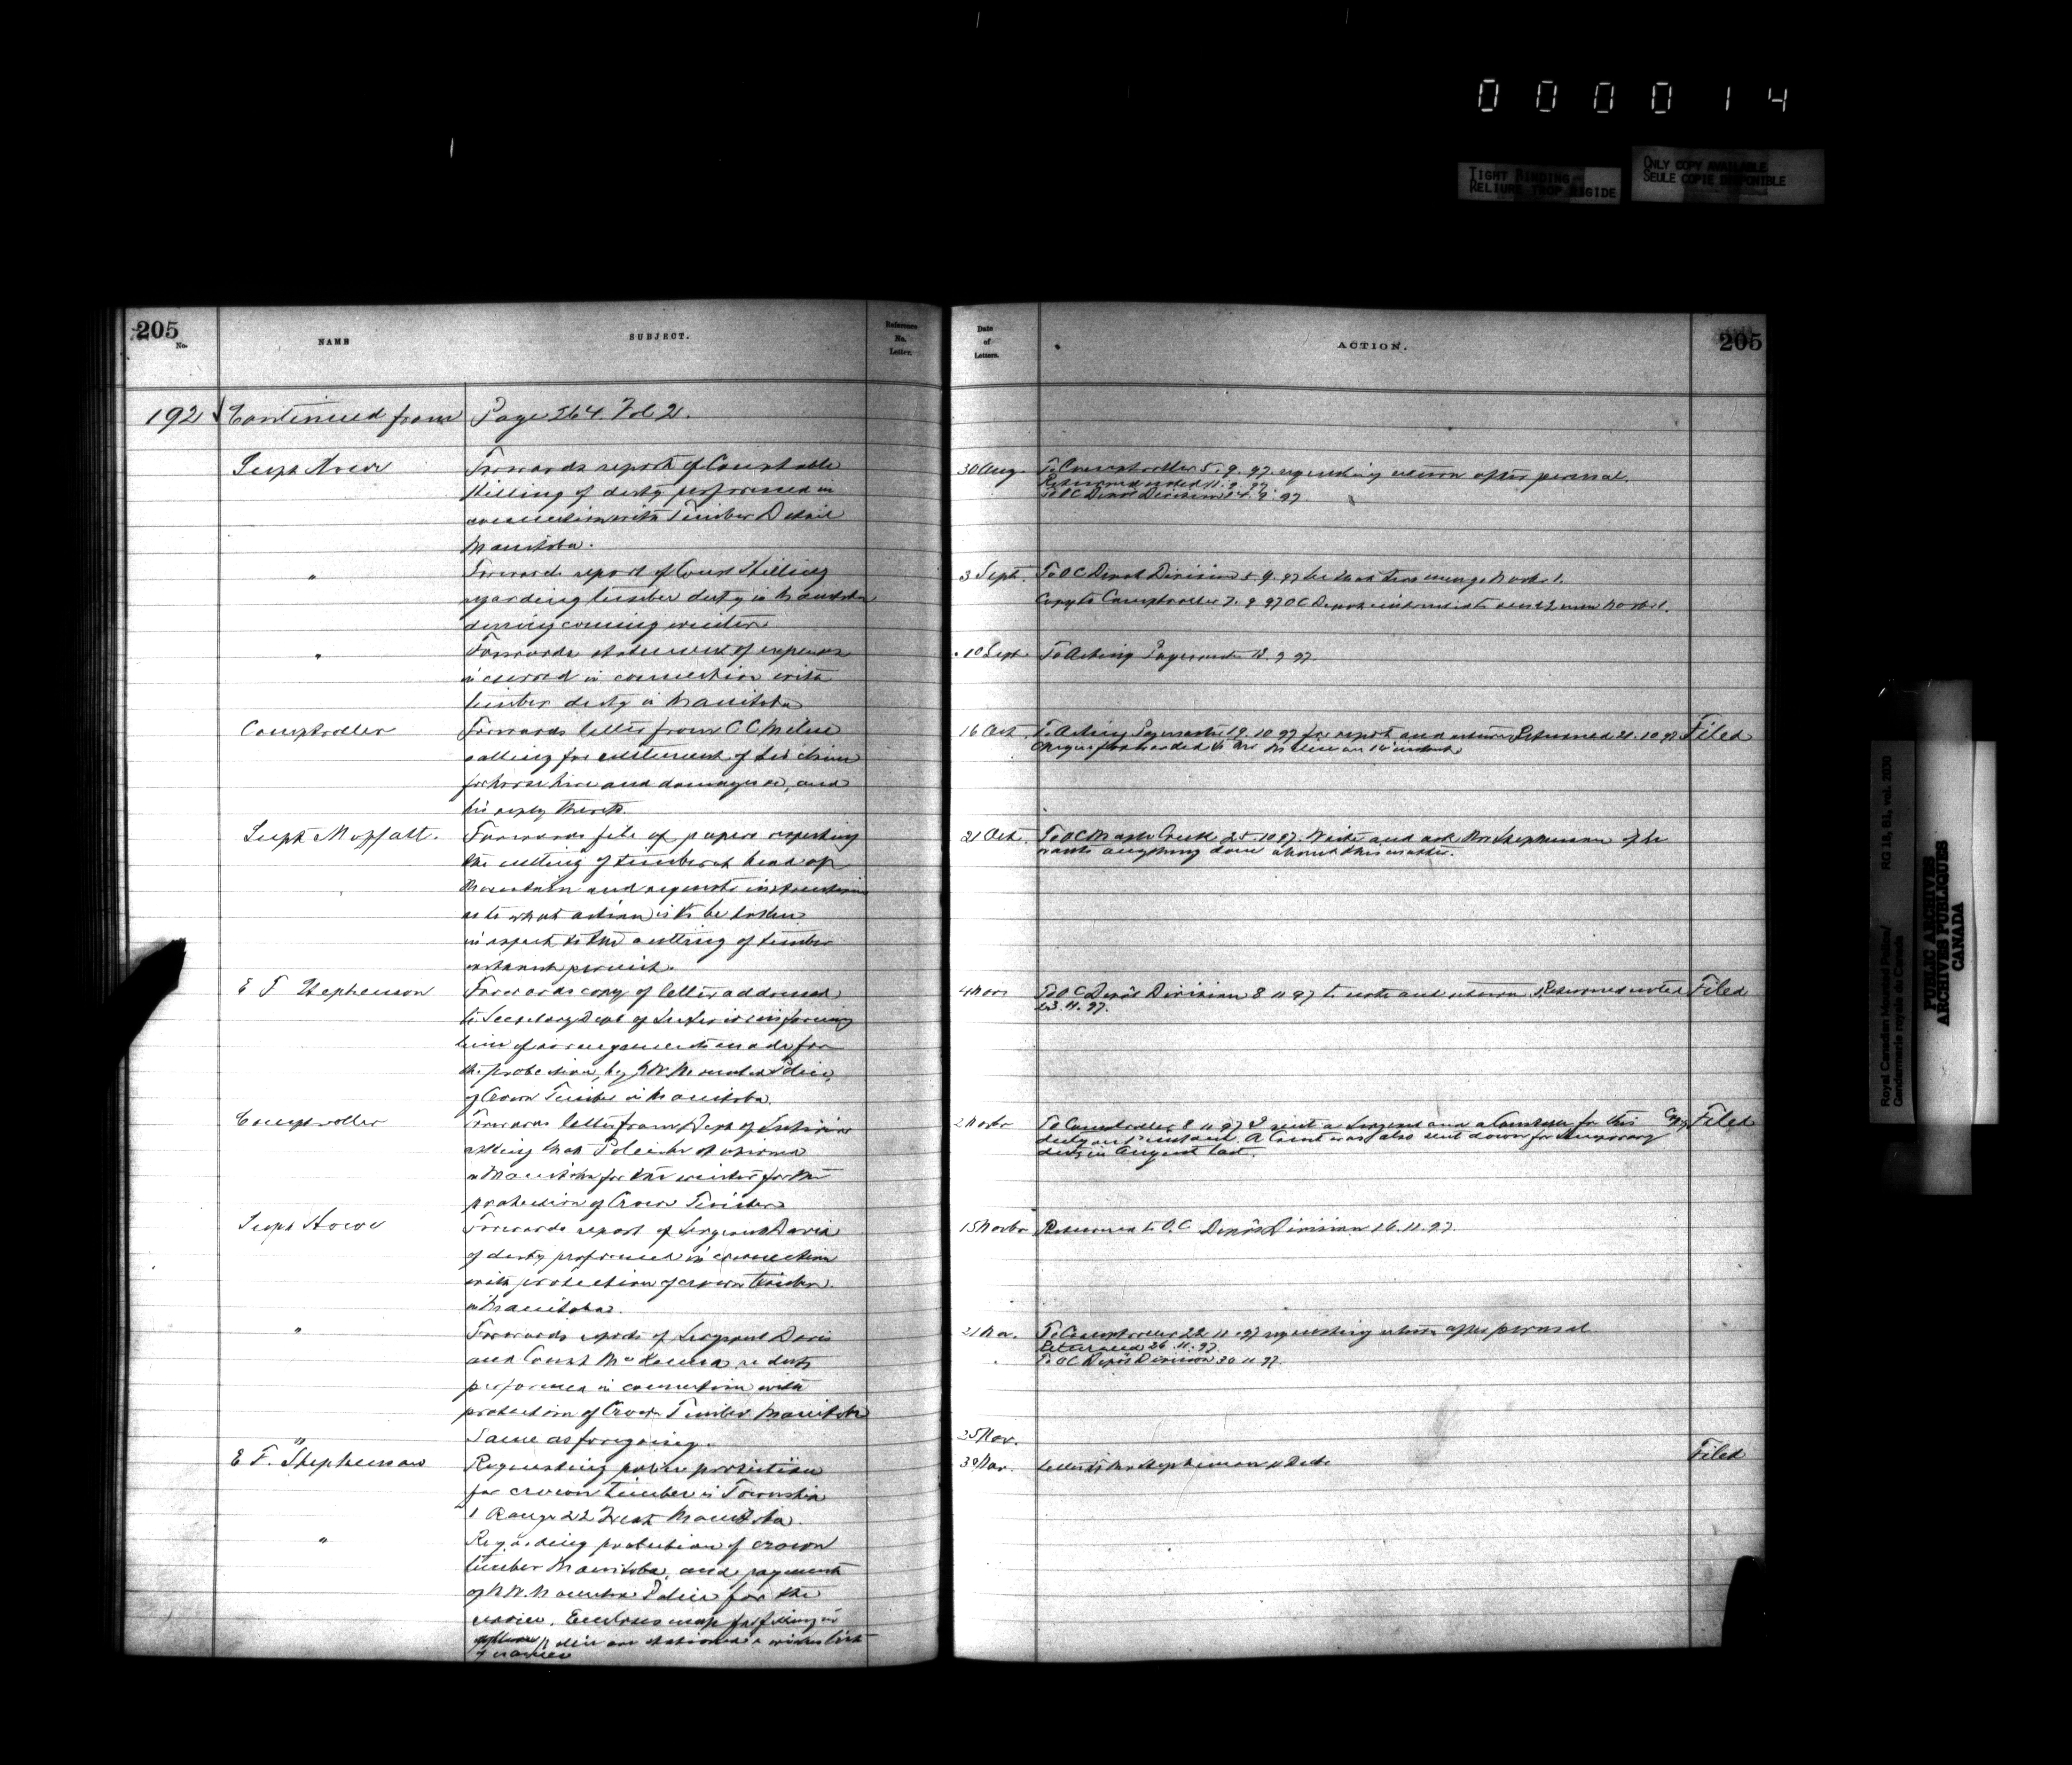 000014
TIGHT BINDING
RELIURE TROP RIGIDE
ONLY COPY AVAILABLE
SEULE COPIE DISPONIBLE
205
No.
NAME
SUBJECT.
Reference
No.
Letter.
Date
of
Letters.
ACTION.
205
192 Continued from Page 264 Vol 2.
Supt Howe
Forwards report of Constable
of duty performed in
connection with Timber Detail
Manitoba.
30 Aug. To Comptroller 5.9.97 requesting return after perusal.
Returned noted 11.9.97
To OC Depot Division 14.9.97
"
Forwards report of Const
regarding timber duty in Manitoba
during coming winter.
3 Sept. To OC Depot Division 5.9.97
Copy to Comptroller 7.9.97 OC Depot
"
Forwards statement of expenses
incurred in connection with
timber duty in Manitoba
10 Sept. To Acting Paymaster 18.9.97.
Comptroller
Forwards letter from C C Milne
calling for settlement of his claim
for horse hire and damages &c, and
his reply thereto.
16 Oct. To Acting Paymaster 19.10.97 for report and return Returned 21.10.97 Filed
Cheque forwarded to Mr Milne on 16 instant
Supt Moffatt.
Forwards file of papers respecting
the cutting of timber at head of
Mountain and requests instructions
as to what action is to be taken
in respect to the cutting of timber
without permit.
21 Oct. To OC Maple Creek 25.10.97. Write and ask Mr Stephenson if he
wants anything done about this matter.
E F Stephenson
Forwards copy of letter addressed
to Secretary Dept of Interior informing
him of arrangements made for
the protection, by N.W. Mounted Police,
of Crown Timber in Manitoba.
4 Nov To OC Depot Division 8.11.97 to note and return. Returned noted Filed
23.11.97.
Comptroller
Forwards letter from Dept of Interior
asking that Police be stationed
in Manitoba for the winter for the
protection of Crown Timber
2 Novbr To Comptroller 8.11.97 I sent a Sergeant and a Constable for this Copy Filed
duty on 1st instant. A Const was also sent down for temporary
duty in August last.
Supt Howe
Forwards report of Sergeant Davis
of duty performed in connection
with protection of crown timber
in Manitoba.
15 Novbr Returned to O.C. Depot Division 16.11.97.
"
Forwards reports of Sergeant Davis
and Const re duty
performed in connection with
protection of Crown Timber Manitoba
21 Nov. To Comptroller 22.11.97 requesting return after perusal
Returned 26.11.97.
To OC Depot Division 30.11.97.
"
Same as foregoing.
25 Nov.
E F. Stephenson
Requesting police protection
for crown timber in Township
1 Range 22 West Manitoba.
30 Nov. Letter to Mr Stephenson Filed
"
Regarding protection of crown
timber Manitoba, and payment
of N.W. Mounted Police for the
service. Encloses map for filling in
where police are stationed &
Royal Canadian Mounted Police/
Gendarmerie royale du Canada
RG 18, B1, vol. 2030
PUBLIC ARCHIVES
ARCHIVES PUBLIQUES
CANADA